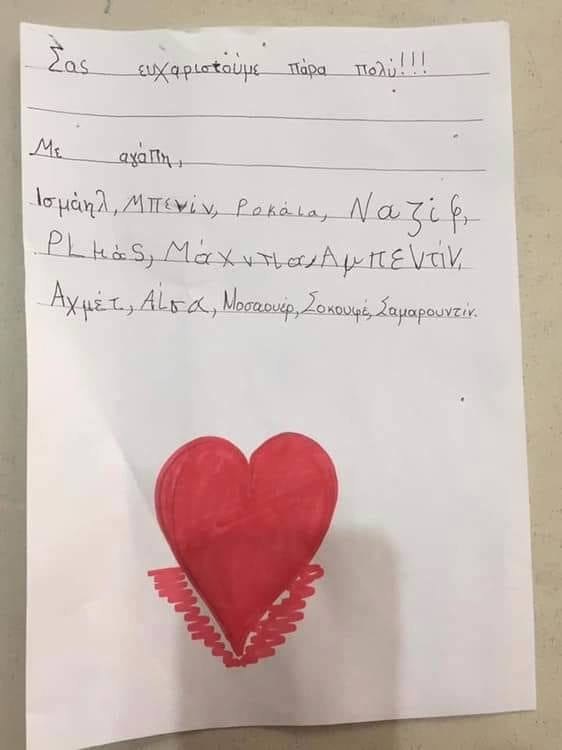 Σας ευχαριστούμε πάρα πολύ!!!
Με αγάπη,
Ισμάηλ, Μπενίν, Ροκάια, Ναζίφ,
Ριμάς, Μάχντια, Αμπεντίν,
Αχμέτ, Αΐσα, Μοσαουέρ, Σοκουφέ, Σαμαρουντίν.